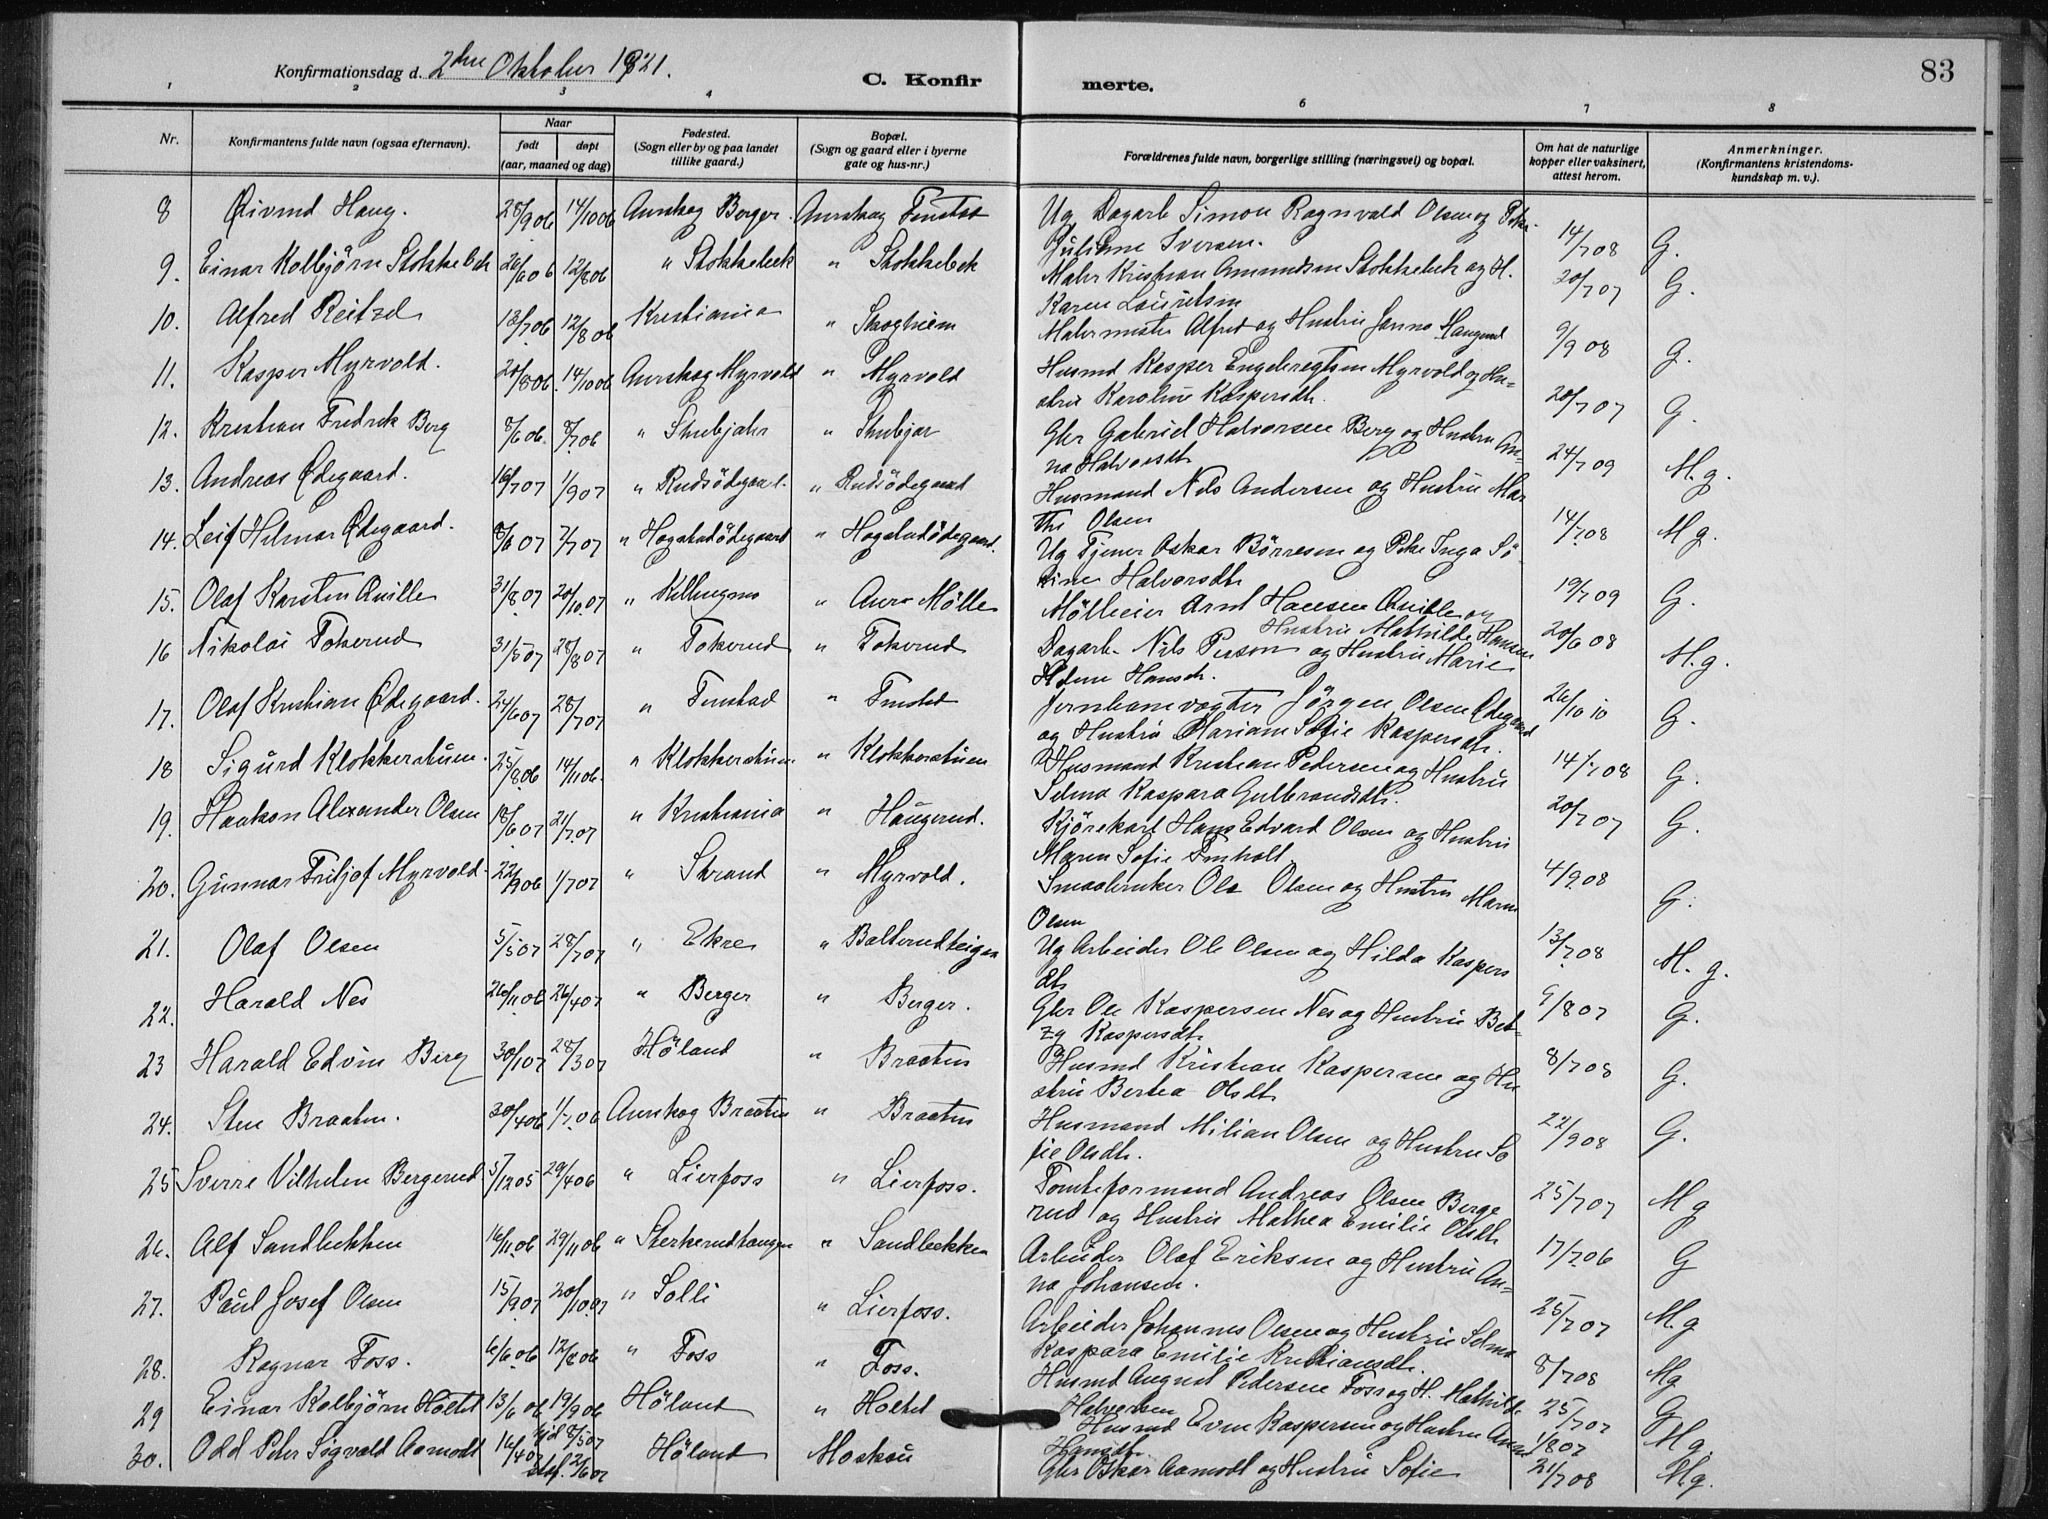 Konfirmationsdag d. 2den Oktober 1921. C. Konfirmerte. 83
1 2 3 4 5 6 7 8
Nr. Konfirmantens fulde navn (ogsaa efternavn). Naar født døpt (aar, maaned og dag) Fødested. (Sogn eller by og paa landet tillike gaard.) Bopæl. (Sogn og gaard eller i byerne gate og hus-nr.) Forældrenes fulde navn, borgerlige stilling (næringsvei) og bopæl. Om hat de naturlige kopper eller vaksinert, attest herom. Anmerkninger. (Konfirmantens kristendomskundskap m. v.).
8 Øivind Haug. 28/9 06 14/10 06 Aurskog Berger. Aurskog Finstad Ug Dagarb Simon Ragnvald Olsen og Pike Julianne Iversen. 14/7 08 G.
9. Einar Kolbjörn Stokkebek 26/6 06 12/8 06 " Stokkebek " Stokkebek Maler Kristian Amundsen Stokkebek og H. Karen Lauritsen 20/7 07 G.
10. Alfred Reitzel 13/7 06 12/8 06 Kristiania " Skoghiem Malermester Alfred og Hustru Janna Haugerud 9/9 08 G.
11. Kasper Myrvold. 20/8 06. 14/10 06 Aurskog Myrvold " Myrvold Husmd Kasper Engebregtsen Myrvold og Hustru Karoline Kaspersdt. 20/7 07 G.
12. Kristian Fredrik Berg 8/6 06. 8/7 06 " " Gbr Gabriel Halvorsen Berg og Hustru Anna Halvorsdt 24/7 09 M.g.
13. Andreas Ödegaard. 16/7 07 1/9 07 " Rudsödegaard. " Rudsödegaard Husmand Nils Andersen og Hustru Marthe Olsen 14/7 08 M g.
14. Leif Hilmar Ödegaard. 8/6 07 7/7 07 " Hogsetödegaard " Hogsetödegaard. Ug Tjener Oskar Börresen og Pike Inga Sörine Halvorsdt 19/7 09 G.
15. Olaf Karsten Quille 31/8 07 20/10 07 " Killingmo " Aur Mölle Möllieier Arnt Hansen Quille og Hustru Mathilde Hansen 20/6 08 M.g.
16 Nikolai Tokerud 31/5 07 28/8 07 " Tokerud " Tokerud Dagarb. Nils Person og Hustru Marie Helene Hansdt.
17. Olaf Kristian Ödegaard. 24/6 07 28/7 07 " Finstad " Finstad Jernbanevogter Jörgen Olsen Ödegaard og Hustru Mariane Sofie Kaspersdt. 26/10 10 G.
18 Sigurd Klokkerstuen. 25/8 06 14/11 06. " Klokkerstuen " Klokkerstuen Husmand Kristian Pedersen og Hustru Selma Kaspara Gulbrandsdt. 14/7 08 G.
19. Haakon Alexander Olsen 18/6 07 21/7 07 " Kristiania " Haugerud. Kjörekarl Hans Edvard Olsen og Hustru Maren Sofie Finholt. 20/7 07 G.
20. Gunnar Fritjof Myrvold. 22/9 06 1/7 07 " Strand " Myrvold. Smaabruker Ole Olsen og Hustru Maren Olsen 4/9 08 G.
21. Olaf Olsen 5/5 07 28/7 07 " Ekre " Balterudteigen Ug Arbeider Ole Olsen og Hilda Kaspersdt 13/7 08 M. g.
22. Harald Nes 26/11 06 26/4 07 " Berger " Berger. Gbr Ole Kaspersen Nes og Hustru Betzy Kaspersdt 9/8 07 G.
23 Harald Edvin Berg 30/1 07 28/3 07 Höland " Braaten Husmd Kristian Kaspersen og Hustru Bertea Olsdt 8/7 08 G.
24. Sten Braaten. 30/4 06 1/7 06 Aurskog Braaten " Braaten Husmand Milian Olsen og Hustru Sofie Olsdt. 22/9 08 G.
25 Sverre Vilhelm Bergerud 5/12 05 29/4 06 " Lierfoss " Lierfoss. Tomteformand Andreas Olsen Bergerud og Hustru Mathea Emilie Olsdt 25/7 07 M g
26. Alf Sandbekken 16/11 06 29/11 06 " Sterkerudhaugen " Sandbekken Arbeider Olaf Eriksen og Hustru Anna Johansen. 17/7 06 G
27. Paul Josef Olsen 15/9 07 20/10 07 " Solli " Lierfoss. Arbeider Johannes Olsen og Hustru Selma Kaspara Emilie Kristiansdt. 25/7 07 M.g
28. Ragnar Foss. 6/6 06 12/8 06 " Foss " Foss. Husmd August Pedersen Foss og H. Mathilde Halvorsen 8/7 08 Mg
29 Einar Kolbjörn Holtet 13/6 06 19/9 06 Höland " Holtet Husmd Even Kaspersen og Hustru Anna Hansdt. 25/7 07 G
30. Odd Peter Sigvald Aamodt 16/4 07 hjd 8/5 07 stdf. 2/6 07 Höland Moskau Gbr Oskar Aamodt og Hustru Sofie 1/8 07 M.g.
21/7 08 M.g.